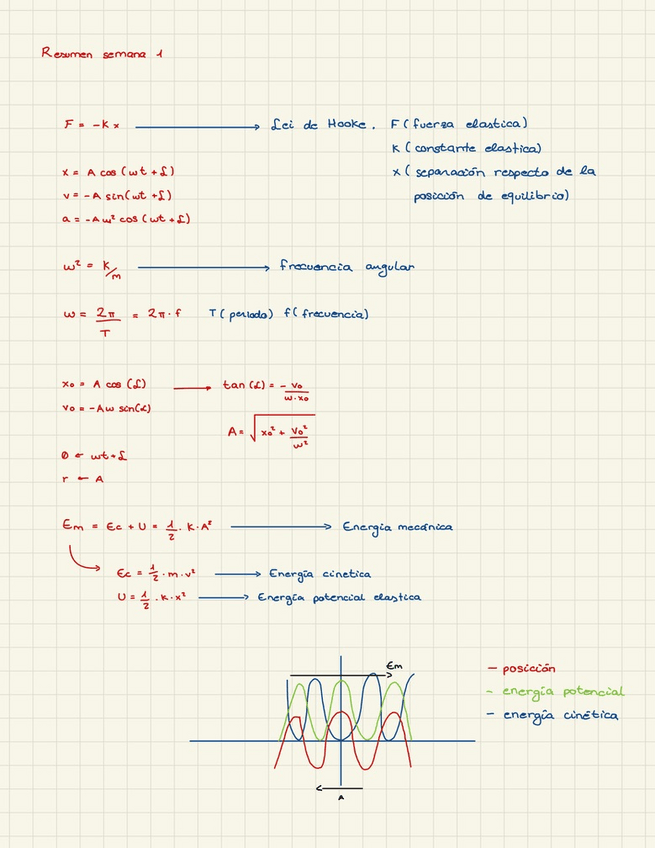 Resumen semana 1
F = -K x → Lei de Hooke. F (fuerza elastica)
K (constante elastica)
x = A cos (ωt + £) x (separación respecto de la
v = -A sin(ωt + £) posición de equilibrio)
a = -Aω² cos (ωt + £)
ω² = K/m → frecuencia angular
ω = 2π/T = 2π·f T (periodo) f (frecuencia)
x₀ = A cos (£) → tan (£) = - v₀/ω·x₀
v₀ = -Aω sin(α) A = √(x₀² + v₀²/ω²)
θ ← ωt + £
r ← A
Em = Ec + U = 1/2 · K · A² → Energía mecánica
Ec = 1/2 · m · v² → Energía cinetica
U = 1/2 · K · x² → Energía potencial elastica
Em
— posición
- energía potencial
- energía cinética
A